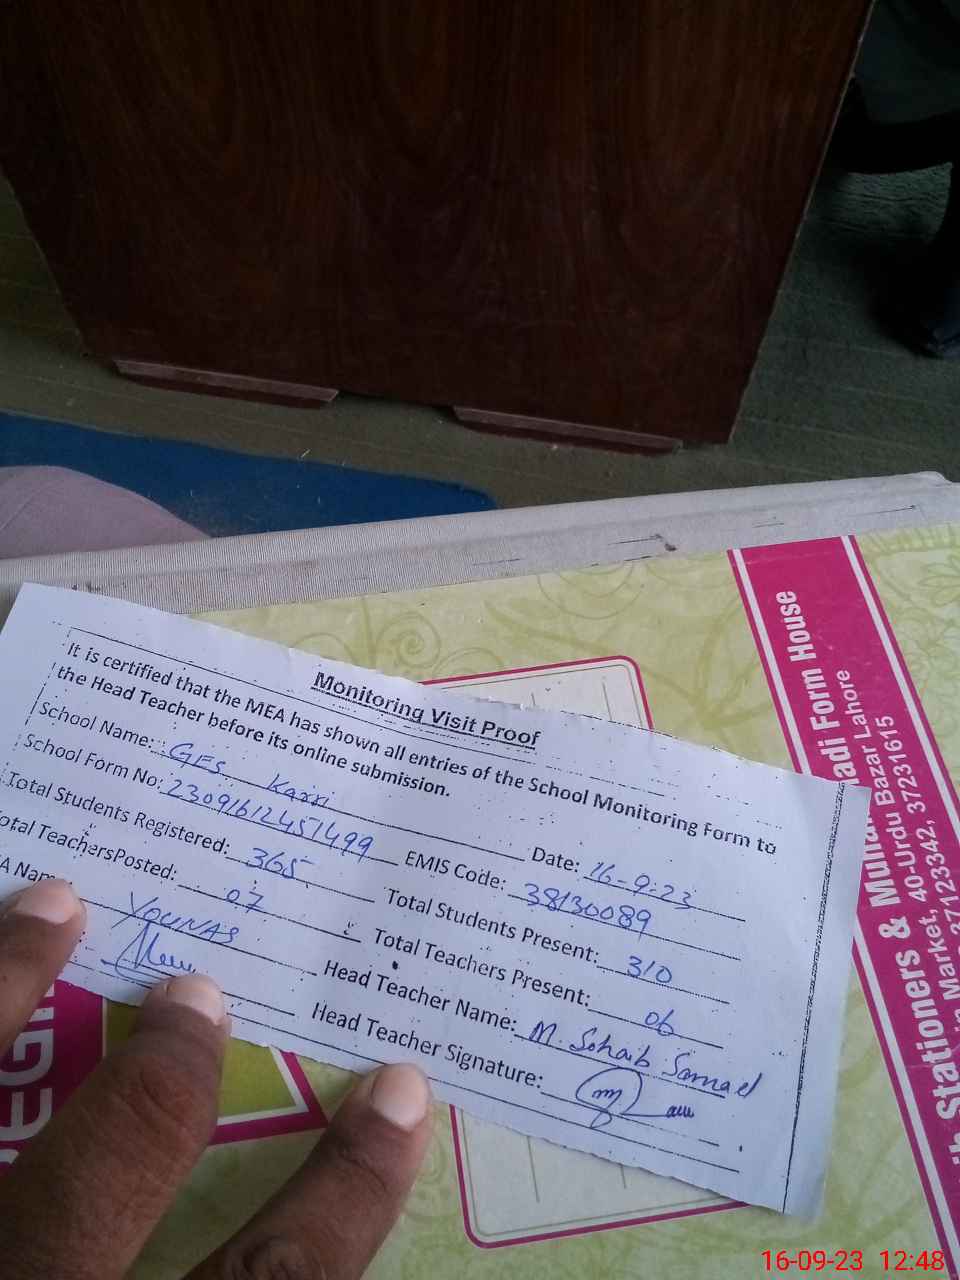 Monitoring Visit Proof
It is certified that the MEA has shown all entries of the School Monitoring Form to
the Head Teacher before its online submission.
School Name: GES Karri Date: 16-9-23
School Form No: 23091612451499 EMIS Code: 38130089
Total Students Registered: 365 Total Students Present: 310
Total Teachers Posted: 07 Total Teachers Present: 06
A Name: YOUNAS Head Teacher Name: M. Sohaib Samael
Head Teacher Signature:
adi Form House
Stationers &
Market, 40-Urdu Bazar Lahore
37123342, 37231615
16-09-23 12:48